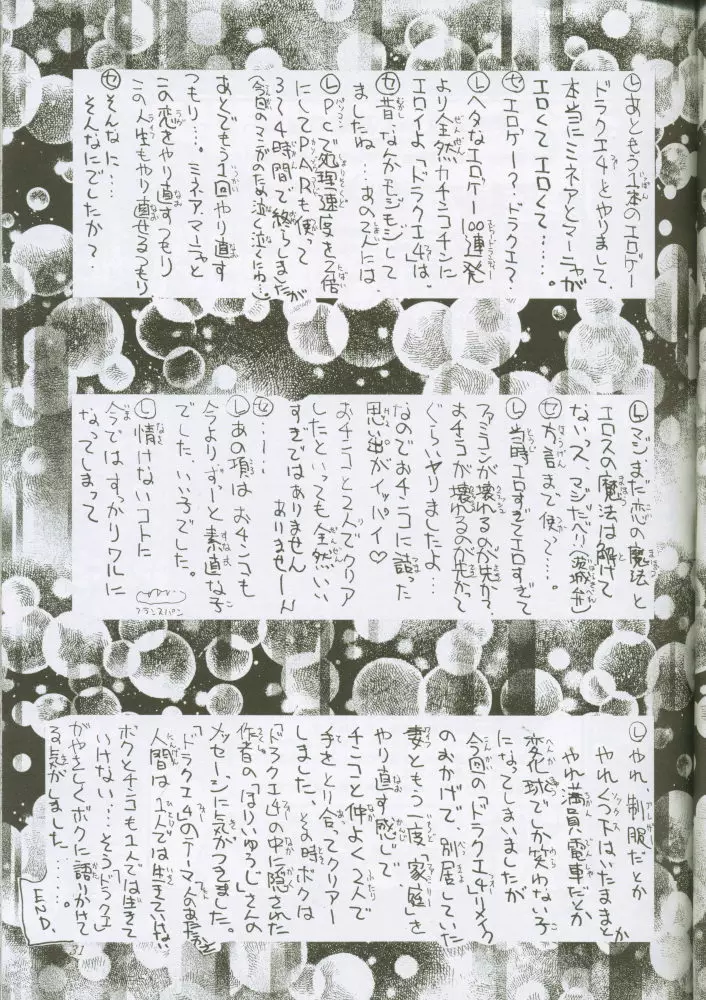 Ⓛあともう1本のエロゲー
ドラクエ4とやりまして、
本当にミネアとマーニャが
エロくてエロくて……。
Ⓗエロゲー??ドラクエ?
Ⓛヘタなエロゲー100連発
より全然カチンコチンに
エロイよ「ドラクエ4」は。
Ⓗ昔、なんかモジモジして
ましたね…あの2人には、
ⓁPCで処理速度を2倍
にしてPARも使って
3〜4時間で終らしましたが
(今回のマンガの長泣く泣くにゅ〜)
あとでもう1回やり直す
つもり…。ミネア、マーニャと
この恋をやり直すつもり
この人生もやり直せるつもり
Ⓗそんなに…
そんなにでしたか?
Ⓛマジまだ恋の魔法と
エロスの魔法は解けて
ないっス、マジだべり(茨城弁)
Ⓗ方言まで使って…。
Ⓛ当時エロすぎてエロすぎて
ファミコンが壊れるのが先か?
おチコが壊れるのが先かって
ぐらいヤリましたよ…
なのでおチンコに誤った
思い出がイッパイ♡
おチンコと2人でクリア
したといっても全然いい
すぎではありません
ありませーん
Ⓗ……
Ⓛあの頃はおチンコも
今よりずーと素直な子
でした。いい子でした。
Ⓛ情けないコトに
今ではすっかりワルに
なってしまって
フランスパン
Ⓛやれ、制服だとか
やれくつ下はいたままとか
やれ満員電車だとか
変化球でしか笑わない子
になってしまいましたが
今回の「ドラクエ4」リメイク
のおかげで、別居していた
妻ともう一度「家庭」を
やり直す感じで、
チンコと仲よく2人で
手をとり合ってクリアー
しました。その時ボクは
「ドラクエ4」の中に隠された
作者の「ほりいゆうじ」さんの
メッセージに気がつきました。
「ドラクエ4」のテーマ
人間は1人では生きていけない
ボクとチンコも1人では生きて
いけない…そうドラクエ
がやさしくボクに語りかけて
る気がしました……。
END.
31